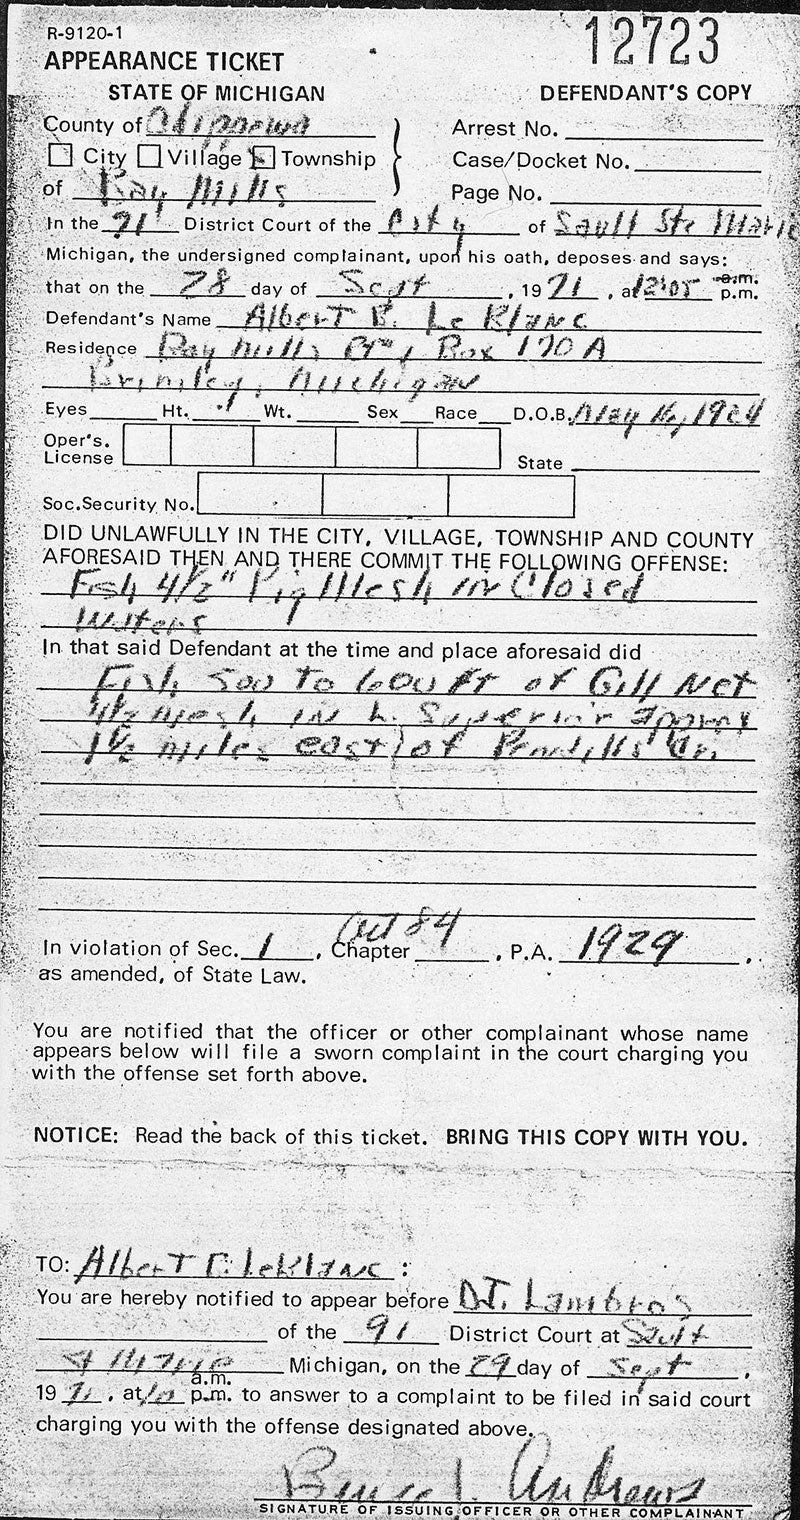 R-9120-1
12723
APPEARANCE TICKET
STATE OF MICHIGAN DEFENDANT'S COPY
County of Chippewa Arrest No.
City Village Township Case/Docket No.
of Bay Mills Page No.
In the 91 District Court of the City of Sault Ste Marie
Michigan, the undersigned complainant, upon his oath, deposes and says:
that on the 28 day of Sept, 1971, at 12:05 a.m. p.m.
Defendant's Name Albert B. Le Blanc
Residence Bay Mills Box 170 A
Brimley, Michigan
Eyes Ht. Wt. Sex Race D.O.B. May 16, 1924
Oper's.
License State
Soc.Security No.
DID UNLAWFULLY IN THE CITY, VILLAGE, TOWNSHIP AND COUNTY
AFORESAID THEN AND THERE COMMIT THE FOLLOWING OFFENSE:
Fish 4 1/2" Mesh in Closed
Waters
In that said Defendant at the time and place aforesaid did
Fish 500 To 600 Ft of Gill Net
4 1/2 mesh in L. Superior approx
1 1/2 miles east of Pendills Cr.
Act 84
In violation of Sec. 1, Chapter , P.A. 1929.
as amended, of State Law.
You are notified that the officer or other complainant whose name
appears below will file a sworn complaint in the court charging you
with the offense set forth above.
NOTICE: Read the back of this ticket. BRING THIS COPY WITH YOU.
TO: Albert B. LeBlanc :
You are hereby notified to appear before D.T. Lambros
of the 91 District Court at Sault
Marie Michigan, on the 29 day of Sept,
a.m.
1971, at 10 p.m. to answer to a complaint to be filed in said court
charging you with the offense designated above.
Andrews
SIGNATURE OF ISSUING OFFICER OR OTHER COMPLAINANT